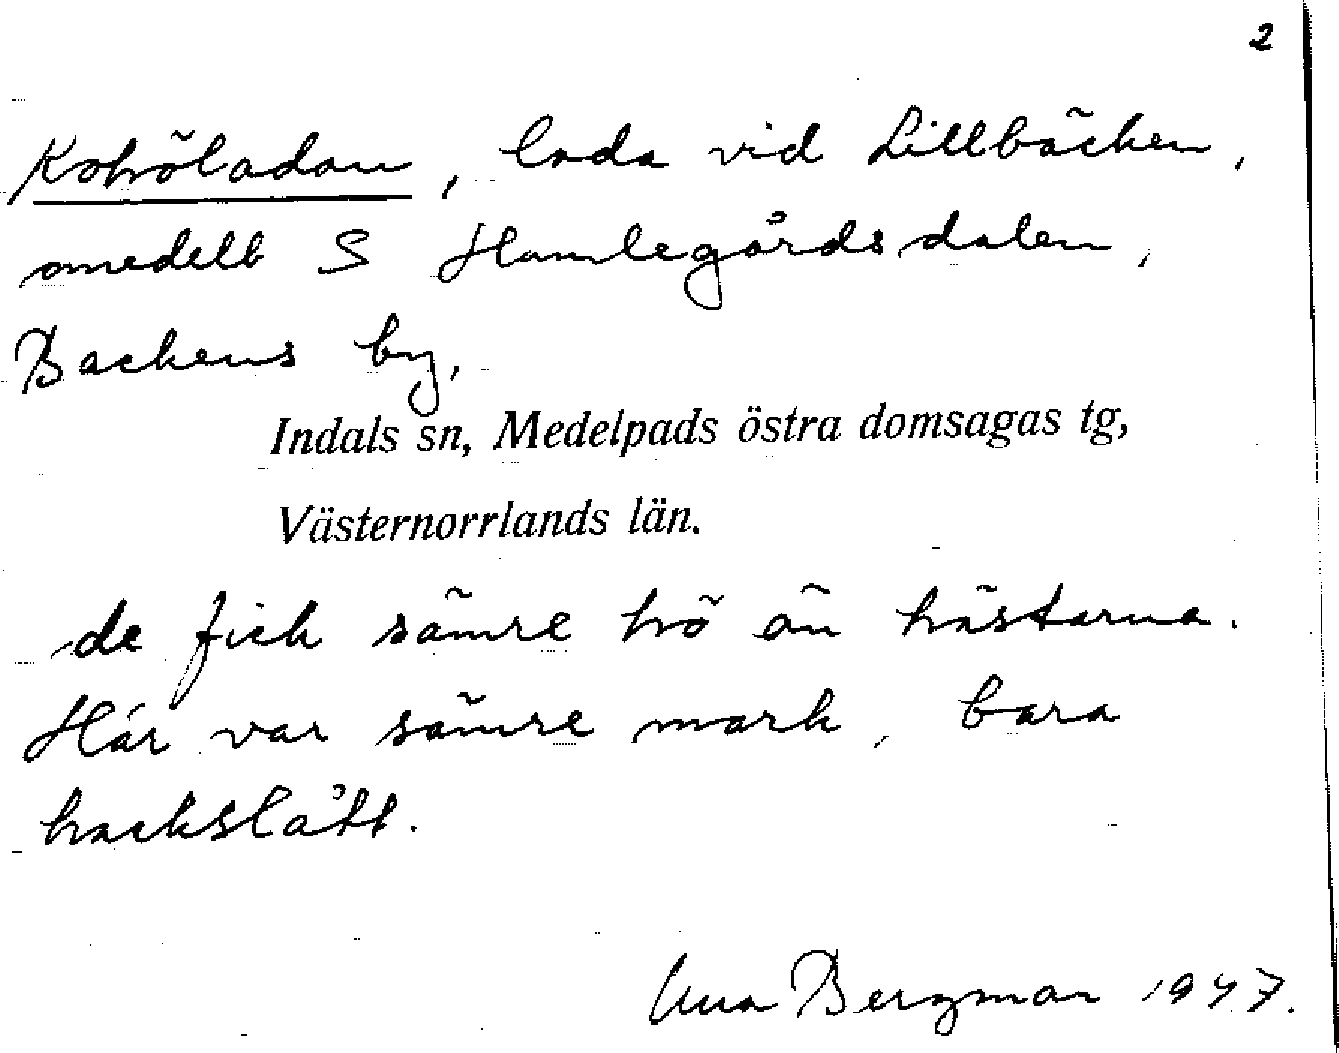 2
Kohöladan, lada vid Lillbäcken,
omedelb S Hamlegårdsdalen,
Backens by,
Indals sn, Medelpads östra domsagas tg,
Västernorrlands län.
de fick sämre hö än hästarna.
Här var sämre mark, bara
hackslått.
Bergman 1947.